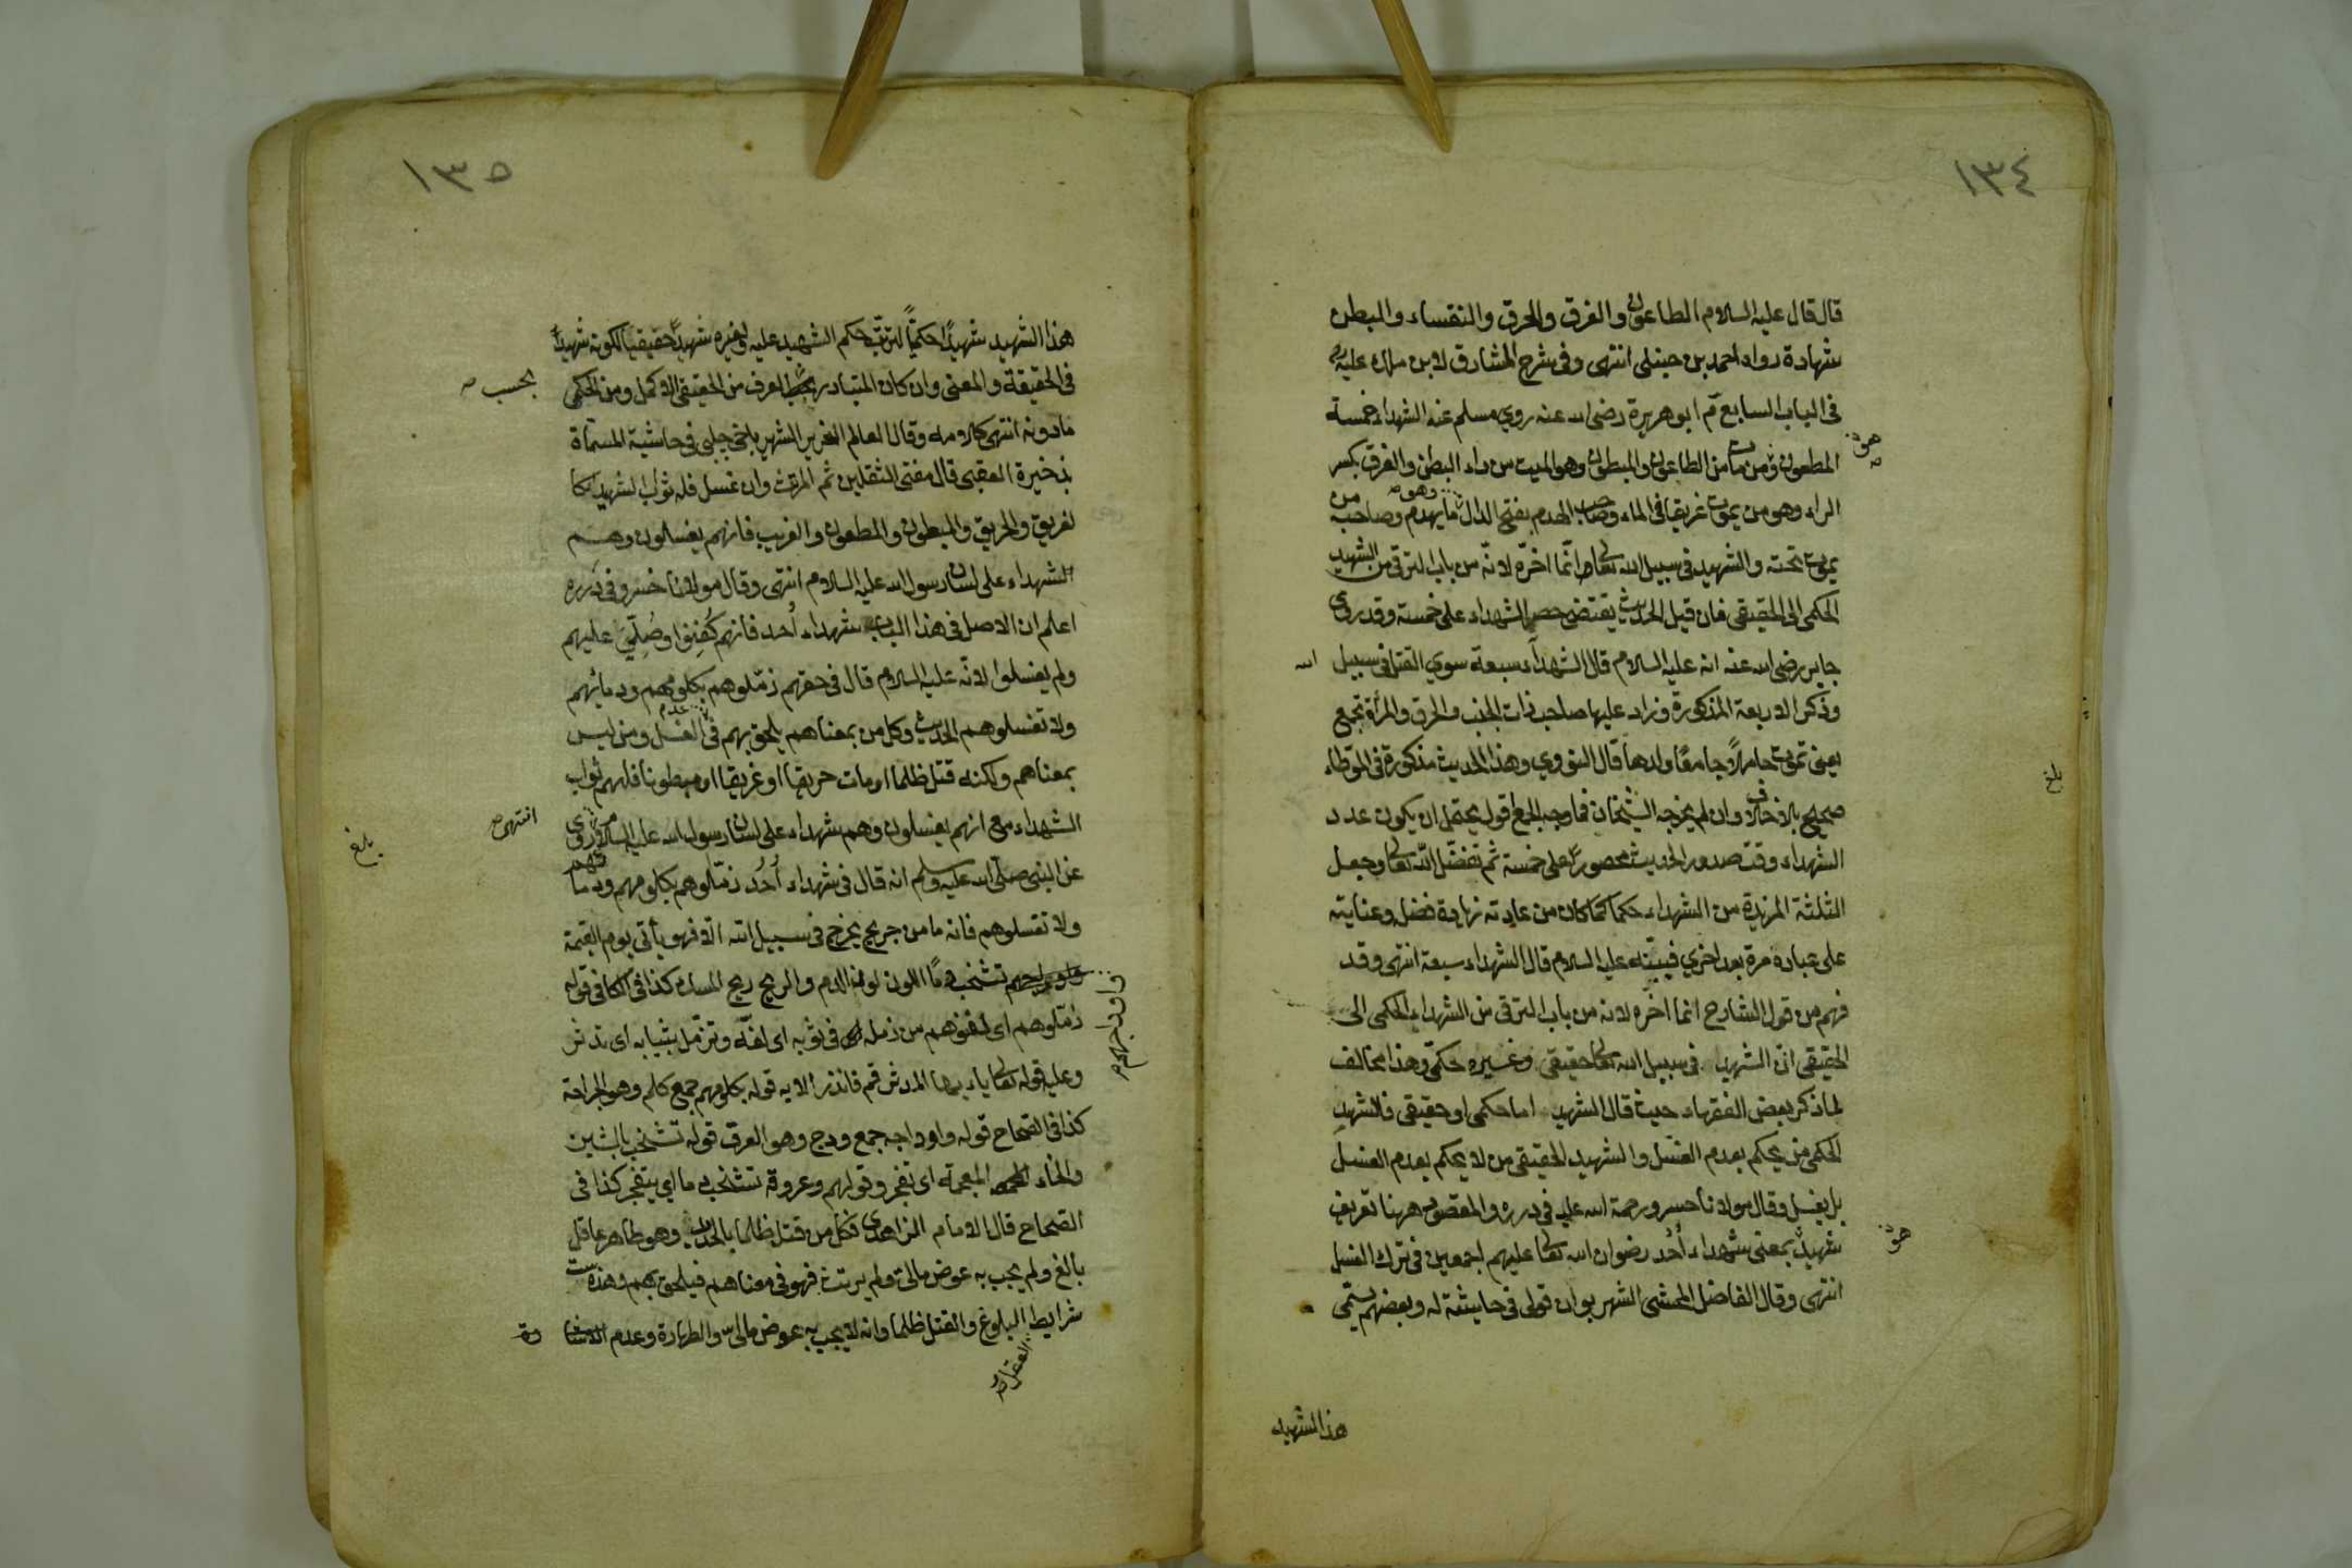 ١٣٤
قال قال عليه السلام الطاعون والغرق والحرق والنفساء والبطن
شهادة رواه احمد بن حنبل انتهى وفى شرح المشارق لابن ملك عليه
فى الباب السابع م ابو هريرة رضى الله عنه روي مسلم عنه الشهداء خمسة
المطعون هو من مات من الطاعون والمبطون وهو الميت من داء البطن والغرق بكسر
الراء وهو من يموت غريقا فى الماء وصاحب الهدم بفتح الدال وهو ما يهدم وصاحبه من
يموت تحته والشهيد فى سبيل الله تعالى وانما اخره لانه من باب الترقى من الشهيد
الحكمى الى الحقيقى فان قيل الحديث يقتضى حصر الشهداء على خمسة وقد روى
جابر رضى الله عنه انه عليه السلام قال الشهداء سبعة سوي القتل فى سبيل الله
وذكر الاربعة المذكورة وزاد عليها صاحب ذات الجنب والحرق والمرأة تجمع
يعنى تموت حاملا جامعا ولدها قال النووي وهذا الحديث مذكورة فى الموطاء
صحيح بلا خلاف وان لم يخرجه الشيخان فما وجه الجمع اقول يحتمل ان يكون عدد
الشهداء وقت صدور الحديث محصورا على خمسة ثم تفضل الله تعالى وجعل
الثلثة المزيدة من الشهداء حكما كما كان من عادته زيادة فضله وعنايته
على عباده مرة بعد اخري فبينه عليه السلام قال الشهداء سبعة انتهى وقد
فهم من قول الشارح انما اخره لانه من باب الترقى من الشهداء الحكمى الى
الحقيقى ان الشهيد فى سبيل الله تعالى حقيقى وغيره حكمى وهذا مخالف
لما ذكر بعض الفقهاء حيث قال الشهيد اما حكمى او حقيقى فالشهيد
الحكمى من يحكم بعدم الغسل والشهيد الحقيقى من لا يحكم بعدم الغسل
بل يغسل وقال مولانا خسرو رحمة الله عليه فى درره والمقصود ههنا تعريف
شهيد هو بمعنى شهداء أحد رضوان الله تعالى عليهم اجمعين فى ترك الغسل
انتهى وقال الفاضل المحشى الشهير بوان قولى فى حاشية له وبعضهم يسمى
هذا الشهيد
بلغ
١٣٥
هذا الشهيد شهيدا حكميا لترتب حكم الشهيد عليه وغيره شهيدا حقيقيا لكونه شهيدا
فى الحقيقة والمعنى وان كان المتبادر بحسب العرف من الحقيقى الاكمل ومن الحكمى
ما دونه انتهى كلامه وقال العالم النحرير الشهير باخى چلبى فى حاشية المسماة
بذخيرة العقبى قال مفتى الثقلين ثم المرتث وان غسل فله ثواب الشهيد كا
لغريق والحريق والمبطون والمطعون والغريب فانهم يغسلون وهم
الشهداء على لسان رسول الله عليه السلام انتهى وقال مولانا خسرو فى درره
اعلم ان الاصل فى هذا الباب شهداء أحد فانهم كفنوا وصلي عليهم
ولم يغسلوا لانه عليه السلام قال فى حقهم زملوهم بكلومهم ودمائهم
ولا تغسلوهم الحديث وكل من بمعناهم يلحق بهم فى عدم الغسل ومن ليس
بمعناهم ولكنه قتل ظلما او مات حريقا او غريقا او مبطونا فلهم ثواب
الشهداء مع انهم يغسلون وهم شهداء على لسان رسول الله عليه السلام انتهى روى
عن النبى صلى الله عليه وسلم انه قال فى شهداء أحد زملوهم بكلومهم ودمائهم
ولا تغسلوهم فانه ما من جريح يجرح فى سبيل الله الا فهو يأتى يوم القيمة
واوداجهم تشخب دما اللون لون الدم والريح ريح المسك كذا فى الكافى قوله
زملوهم اى لفوهم من زمله فى ثوبه اى لفه وتزمل بثيابه اى تدثر
وعليه قوله تعالى يا ايها المدثر قم فانذر الايه قوله بكلومهم جمع كلم وهو الجراحة
كذا فى الصحاح قوله واوداجه جمع ودج وهو العرق قوله تشخب بالشين
والخاء المعجمة اى تفجر وقولهم وعروقه تشخب دما اي يتفجر كذا فى
الصحاح قال الامام الزاهدى فكل من قتل ظلما بالحديد وهو طاهر عاقل
بالغ ولم يجب به عوض مالى ولم يرتث فهو فى معناهم فيلحق بهم وهذه ست
شرايط العقل البلوغ والقتل ظلما وانه لا يجب به عوض مالى والطهارة وعدم
بلغ